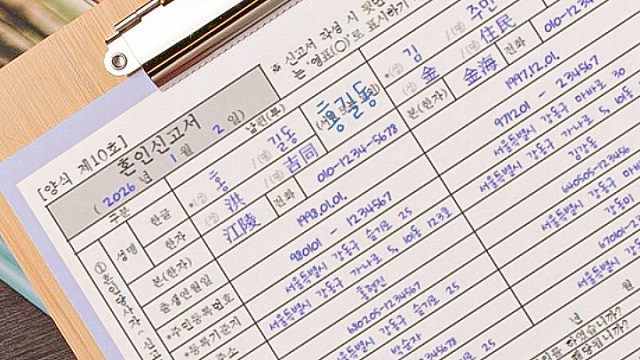 ※ 신고서 작성 시 뒷면
는 '영표(○)'로 표시하기
[양식 제10호]
혼인신고서
( 2026 년 1 월 2 일)
구분
남편(부)
① 혼인당사자(신고
성명
한글
(성) 홍 / (명) 길동
홍길동
(성) 김 / (명) 주민
한자
(성) 洪 / (명) 吉同
전화 010-1234-5678
(성) 金 / (명) 金海 住民
전화 010-12
본(한자)
江陵
본(한자)
출생연월일
1998.01.01.
1997.12.01.
*주민등록번호
980101 - 1234567
971201 - 234567
*등록기준지
서울특별시 강동구 슬기로 25
서울특별시 강동구 마바로 30
주소
서울특별시 강동구 가나로 5, 10동 123호
서울특별시 강동구 가나로 5, 10동
홍형진
김강동
680205-1234567
640505-123456
서울특별시 강동구 슬기로 25
서울특별시 강동구 마
박슬자
강동미
670101-2
서울특별시 강
년 월